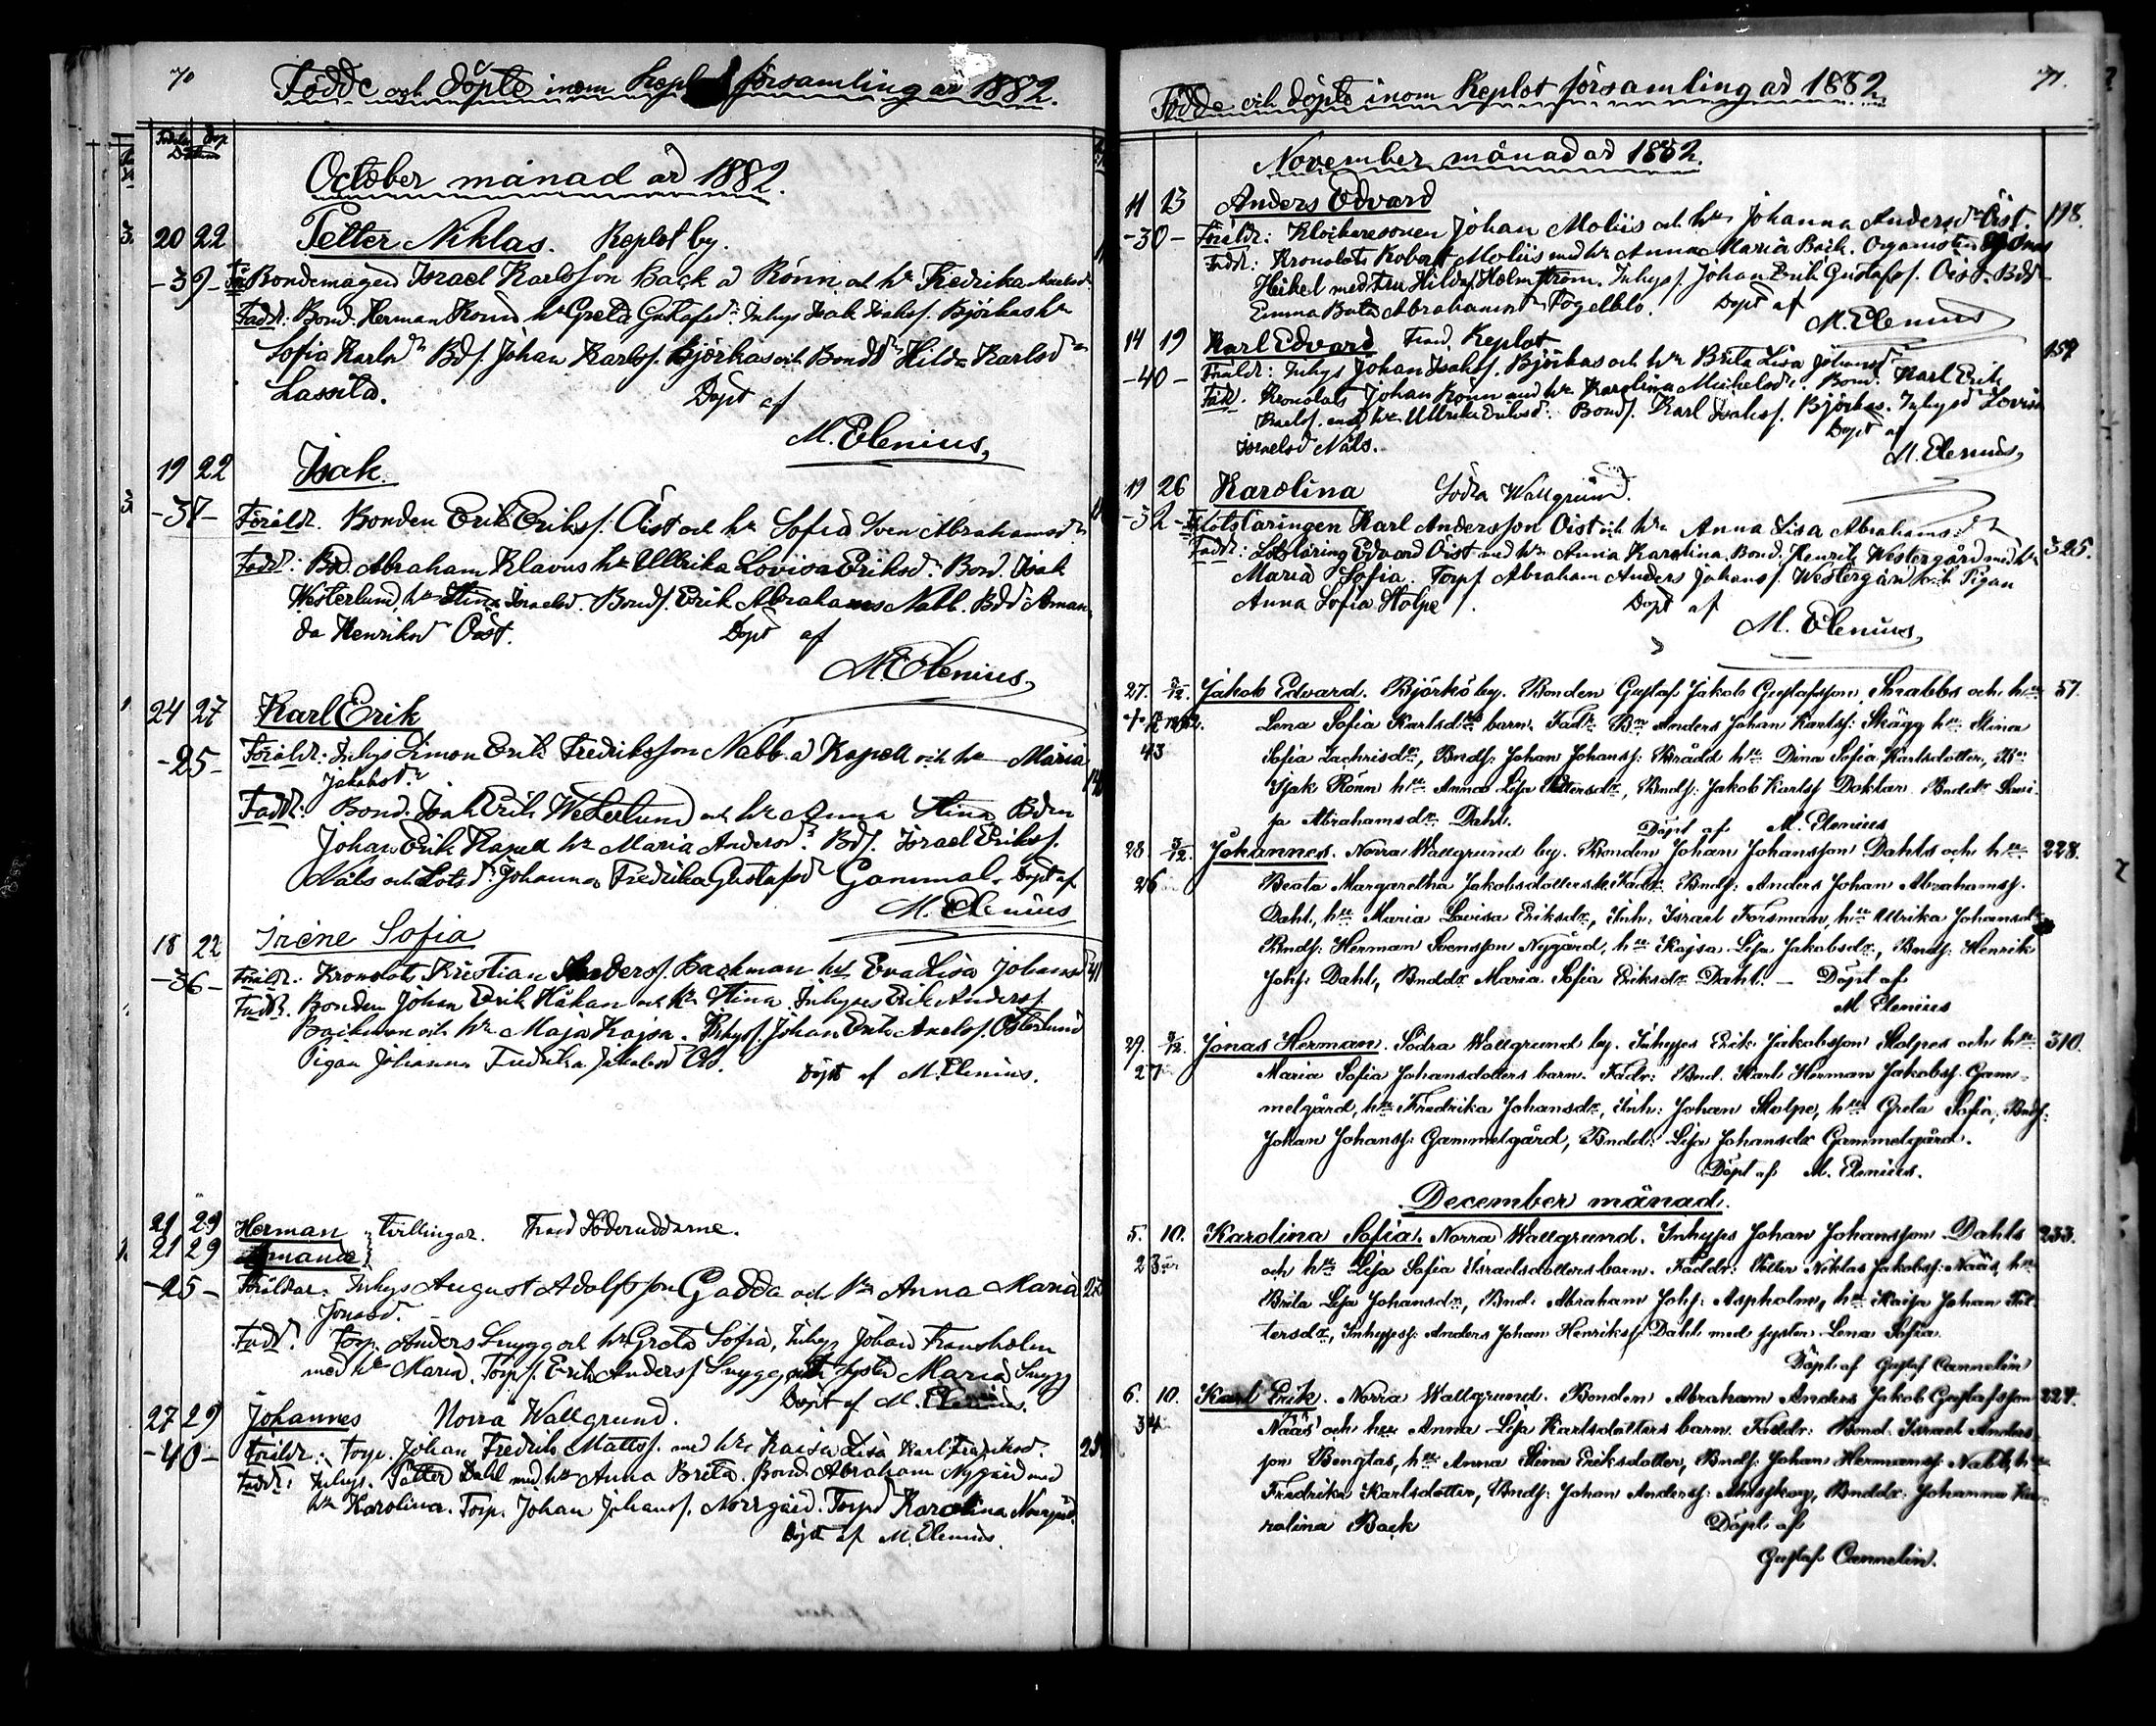 70
Födde och döpte inom Replot församling år 1882.
Födelse Dop
Datum
October månad år 1882.
3. 20 22 Petter Niklas. Replot by.
-39- Bondemågen Israel Karlsson Back à Rönn och h:u Fredrika
Fadd: Bond. Herman Rönn h:u Greta Gustafsd:r Inhys Isak Isaks. Björkas h:u
Sofia Karlsd:r Bds. Johan Karlss. Björkas och Bondd:r Hilda Karlsd:r
Lassila. Döpt af
M. Elenius.
19 22 Isak.
3. -37- Föräldr. Bonden Erik Erikss. Öist och h:u Sofia Sven Abrahamsd:r
Fadd: Bd. Abraham Klavus h:u Ullrika Lovisa Eriksd:r Bond. Isak
Westerlund, h:u Stina Israelsd. Bonds. Erik Abrahams Nabb. Bdd:r Aman
da Henriksd:r Öist. Döpt af
M. Elenius.
1 24 27 Karl Erik
-25- Föräldr: Inhys Simon Erik Fredriksson Nabb à Kapell och h:u Maria
Jakobsd:r
Fadd: Bond. Isak Erik Westerlund och h:u Anna Stina Bden
Johan Erik Kapell h:u Maria Andersd:r Bds. Israel Erikss.
Näls och Lots d:r Johanna Fredrika Gustafsd Gammal. Döpt af
M. Elenius
18 22 Irene Sofia
-36- Föräldr: Kronolots Kristian Anderss. Backman h:u Eva Lisa Johansd
Fadd. Bonden Johan Erik Håkan och h:u Stina Inhyses Erik Anderss.
Backman och h:u Maja Kajsa. Inhyss. Johan Erik Axels. Österlund
Pigan Johanna Fredrika Jakobsd
Döpt af M. Elenius.
21 29 Herman tvillingar. Från Söderuddarne.
1. 21 29 Amanda
-25- Föräldrar: Inhys August Adolfsson Gädda och h:u Anna Maria
Jonasd.
Fadd. Torp. Anders Snygg och h:u Greta Sofia, Inhys Johan Fransholm
med h:u Maria. Torps. Erik Anderss Snygg och syster Maria Snygg
Döpt af M. Elenius.
27 29 Johannes Norra Wallgrund.
-40- Föräldr: Torp. Johan Fredrik Mattss. med h:u Kaisa Lisa Karl Fredriksd.
Fadd: Inhys. Petter Dahl med h:u Anna Brita. Bond. Abraham Nygård med
h:u Karolina. Torp. Johan Johanss. Norrgård. Torpd Karolina Norrgård.
Döpt af M. Elenius.
71.
Födde och döpte inom Replot församling år 1882
November månad år 1882.
11 13 Anders Edvard
-30- Föräldr: Klockaresonen Johan Moliis och h:u Johanna Andersd:r Öist. 198.
Fadd: Kronolots Robert Moliis med h:u Anna Maria Back. Organisten
Heikel med Fru Hilda Holmström. Inhyss. Johan Erik Gustafss. Öist. Bdd
Emma Brita Abrahamsd:r Fogelklo. Döpt af
M. Elenius
14 19 Karl Edvard Från Replot 159
-40- Föräldr: Inhys Johan Isakss. Björkas och h:u Brita Lisa Johansd
Fad. Kronolots Johan Rönn med h:u Karolina Michelsd:r. Bond. Karl Erik
Karlss. med h:u Ullrika Eriksd:r Bonds. Karl Isakss. Björkas. Inhysd Lovisa
Israelsd Näls. Döpt af
M. Elenius,
19 26 Karolina Södra Wallgrund.
-32- Lotsläringen Karl Andersson Öist och h:u Anna Lisa Abrahamsd:r
Fadd: Lotsläring Edvard Öist med h:u Anna Karolina. Bond. Henrik Westergård med h:u 325.
Maria Sofia. Torps Abraham Anders Johanss. Westergård och Pigan
Anna Sofia Stolpe Döpt af
M. Elenius,
27. 3/12. Jakob Edvard. Björkö by. Bonden Gustaf Jakob Gustafsson Snabbs och h:u 57.
Lena Sofia Karlsd:rs barn. Fad:r Bn Anders Johan Karlss: Skägg h:u Stina
43 Sofia Zachrisd:r, Bnds: Johan Johanss: Skrädd h:u Dina Sofia Karlsdotter, Bn
Isak Rönn h:u Anna Lisa Pettersd:r, Bnds: Jakob Karlss Doktar Bndd:r Lovi-
sa Abrahamsd:r Dahl. Döpt af M. Elenius
28 3/12. Johannes. Norra Wallgrund by. Bonden Johan Johansson Dahls och h:u 228.
26 Beata Margaretha Jakobsdotters b. Fad:r Bnds: Anders Johan Abrahamss.
Dahl, h:u Maria Lovisa Eriksd:r, Inh: Israel Forsman, h:u Ulrika Johansd:r
Bnds: Herman Svensson Nygård, h:u Kajsa Lisa Jakobsd:r, Bnds: Henrik
Johs: Dahl, Bndd:r Maria Sofia Eriksd:r Dahl. Döpt af
M Elenius
29. 3/12. Jonas Herman. Södra Wallgrund by. Inhyses Erik Jakobsson Stolpes och h:u 310.
27 Maria Sofia Johansdotters barn. Fadr: Bnd. Karl Herman Jakobss. Gam-
melgård, h:u Fredrika Johansd:r, Inh: Johan Stolpe, h:u Greta Sofia, Bnds:
Johan Johanss: Gammelgård, Bndd: Lisa Johansd:r Gammelgård.
Döpt af M. Elenius.
December månad.
5. 10. Karolina Sofia. Norra Wallgrund. Inhyses Johan Johansson Dahls 233.
23 år och h:u Lisa Sofia Israelsdotters barn. Faddr: Petter Niklas Jakobss: Nääs, h:u
Brita Lisa Johansd:r, Bnd: Abraham Johs: Aspholm, h:u Kaisa Johan Pet-
tersd:r, Inhysess: Anders Johan Henrikss Dahl med syster Lena Sofia
Döpt af Gustaf Cannelin
6. 10. Karl Erik. Norra Wallgrund. Bonden Abraham Anders Jakob Gustafsson 224.
34 Nääs och h:u Anna Lisa Karlsdotters barn. Faddr: Bond. Israel Anders-
son Benglas, h:u Anna Stina Eriksdotter, Bnds: Johan Hermanss: Nabb, h:u
Fredrika Karlsdotter, Bnds: Johan Anderss: Antskog, Bndd:r Johanna Ka-
rolina Back Döpt af
Gustaf Cannelin.